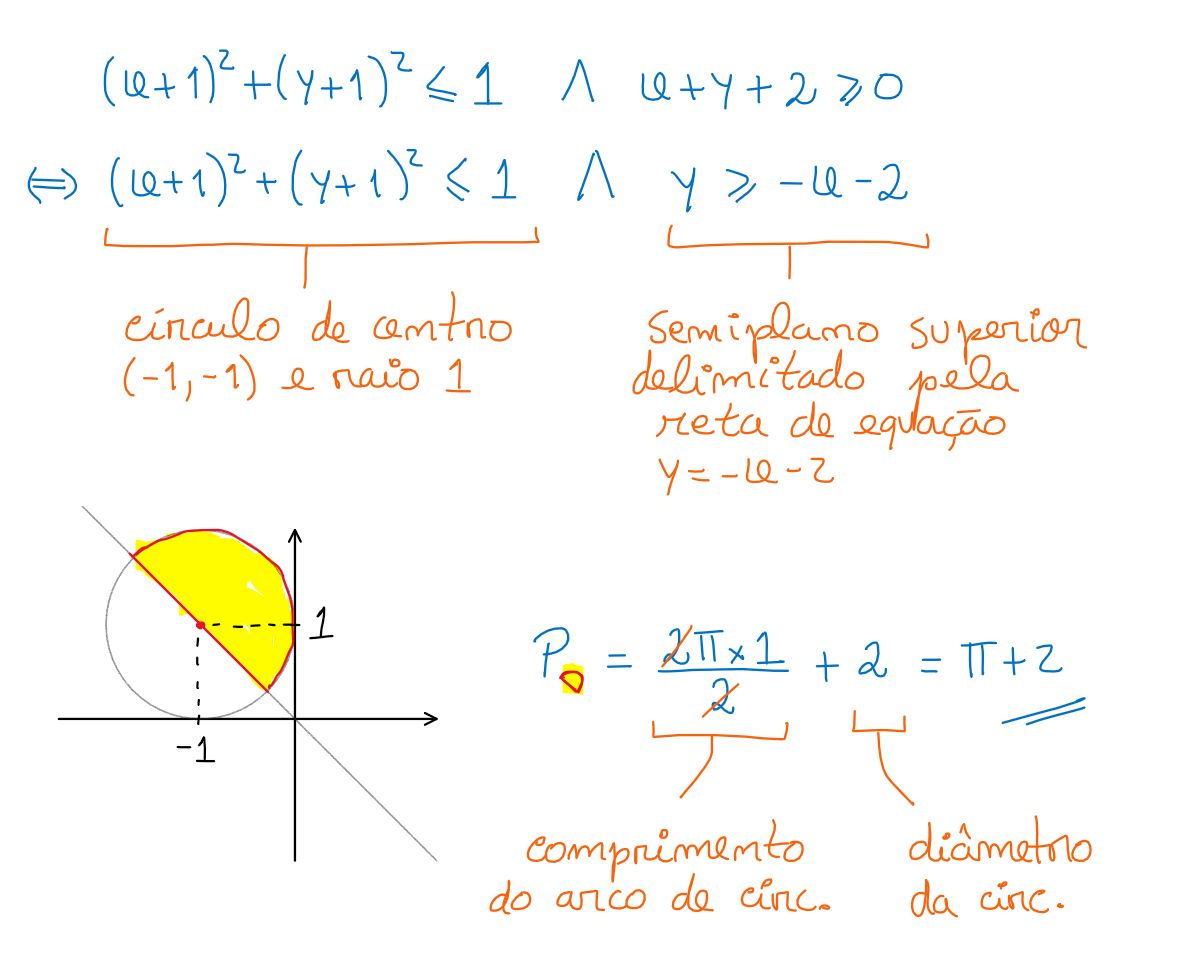 (x+1)²+(y+1)² ⩽ 1 ∧ x+y+2 ⩾ 0
⇔ (x+1)²+(y+1)² ⩽ 1 ∧ y ⩾ -x-2
círculo de centro
(-1,-1) e raio 1
semiplano superior
delimitado pela
reta de equação
y=-x-2
1
-1
P = 2π×1/2 + 2 = π+2
comprimento
do arco de circ.
diâmetro
da circ.